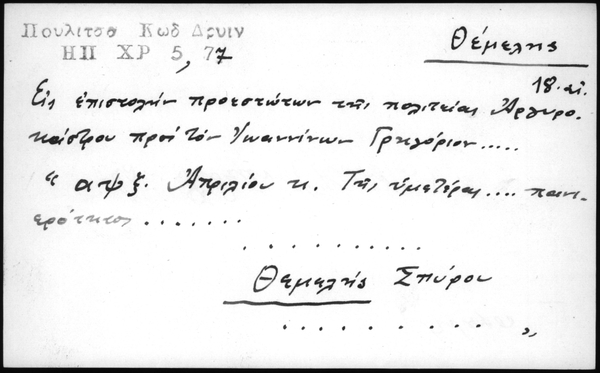 Πουλιτσα Κωδ Δρυιν
ΗΠ ΧΡ 5, 77
Θέμελης
18. αἰ.
Εἰς ἐπιστολὴν προεστώτων τῆς πολιτείας Ἀργυρο-
κάστρου πρὸς τὸν Ἰωαννίνων Γρηγόριον.....
" αψξ. Ἀπριλίου κ. Τῆς ὑμετέρας.... πανι-
ερότητος .......
..........
Θεμελής Σπύρου
.......... "